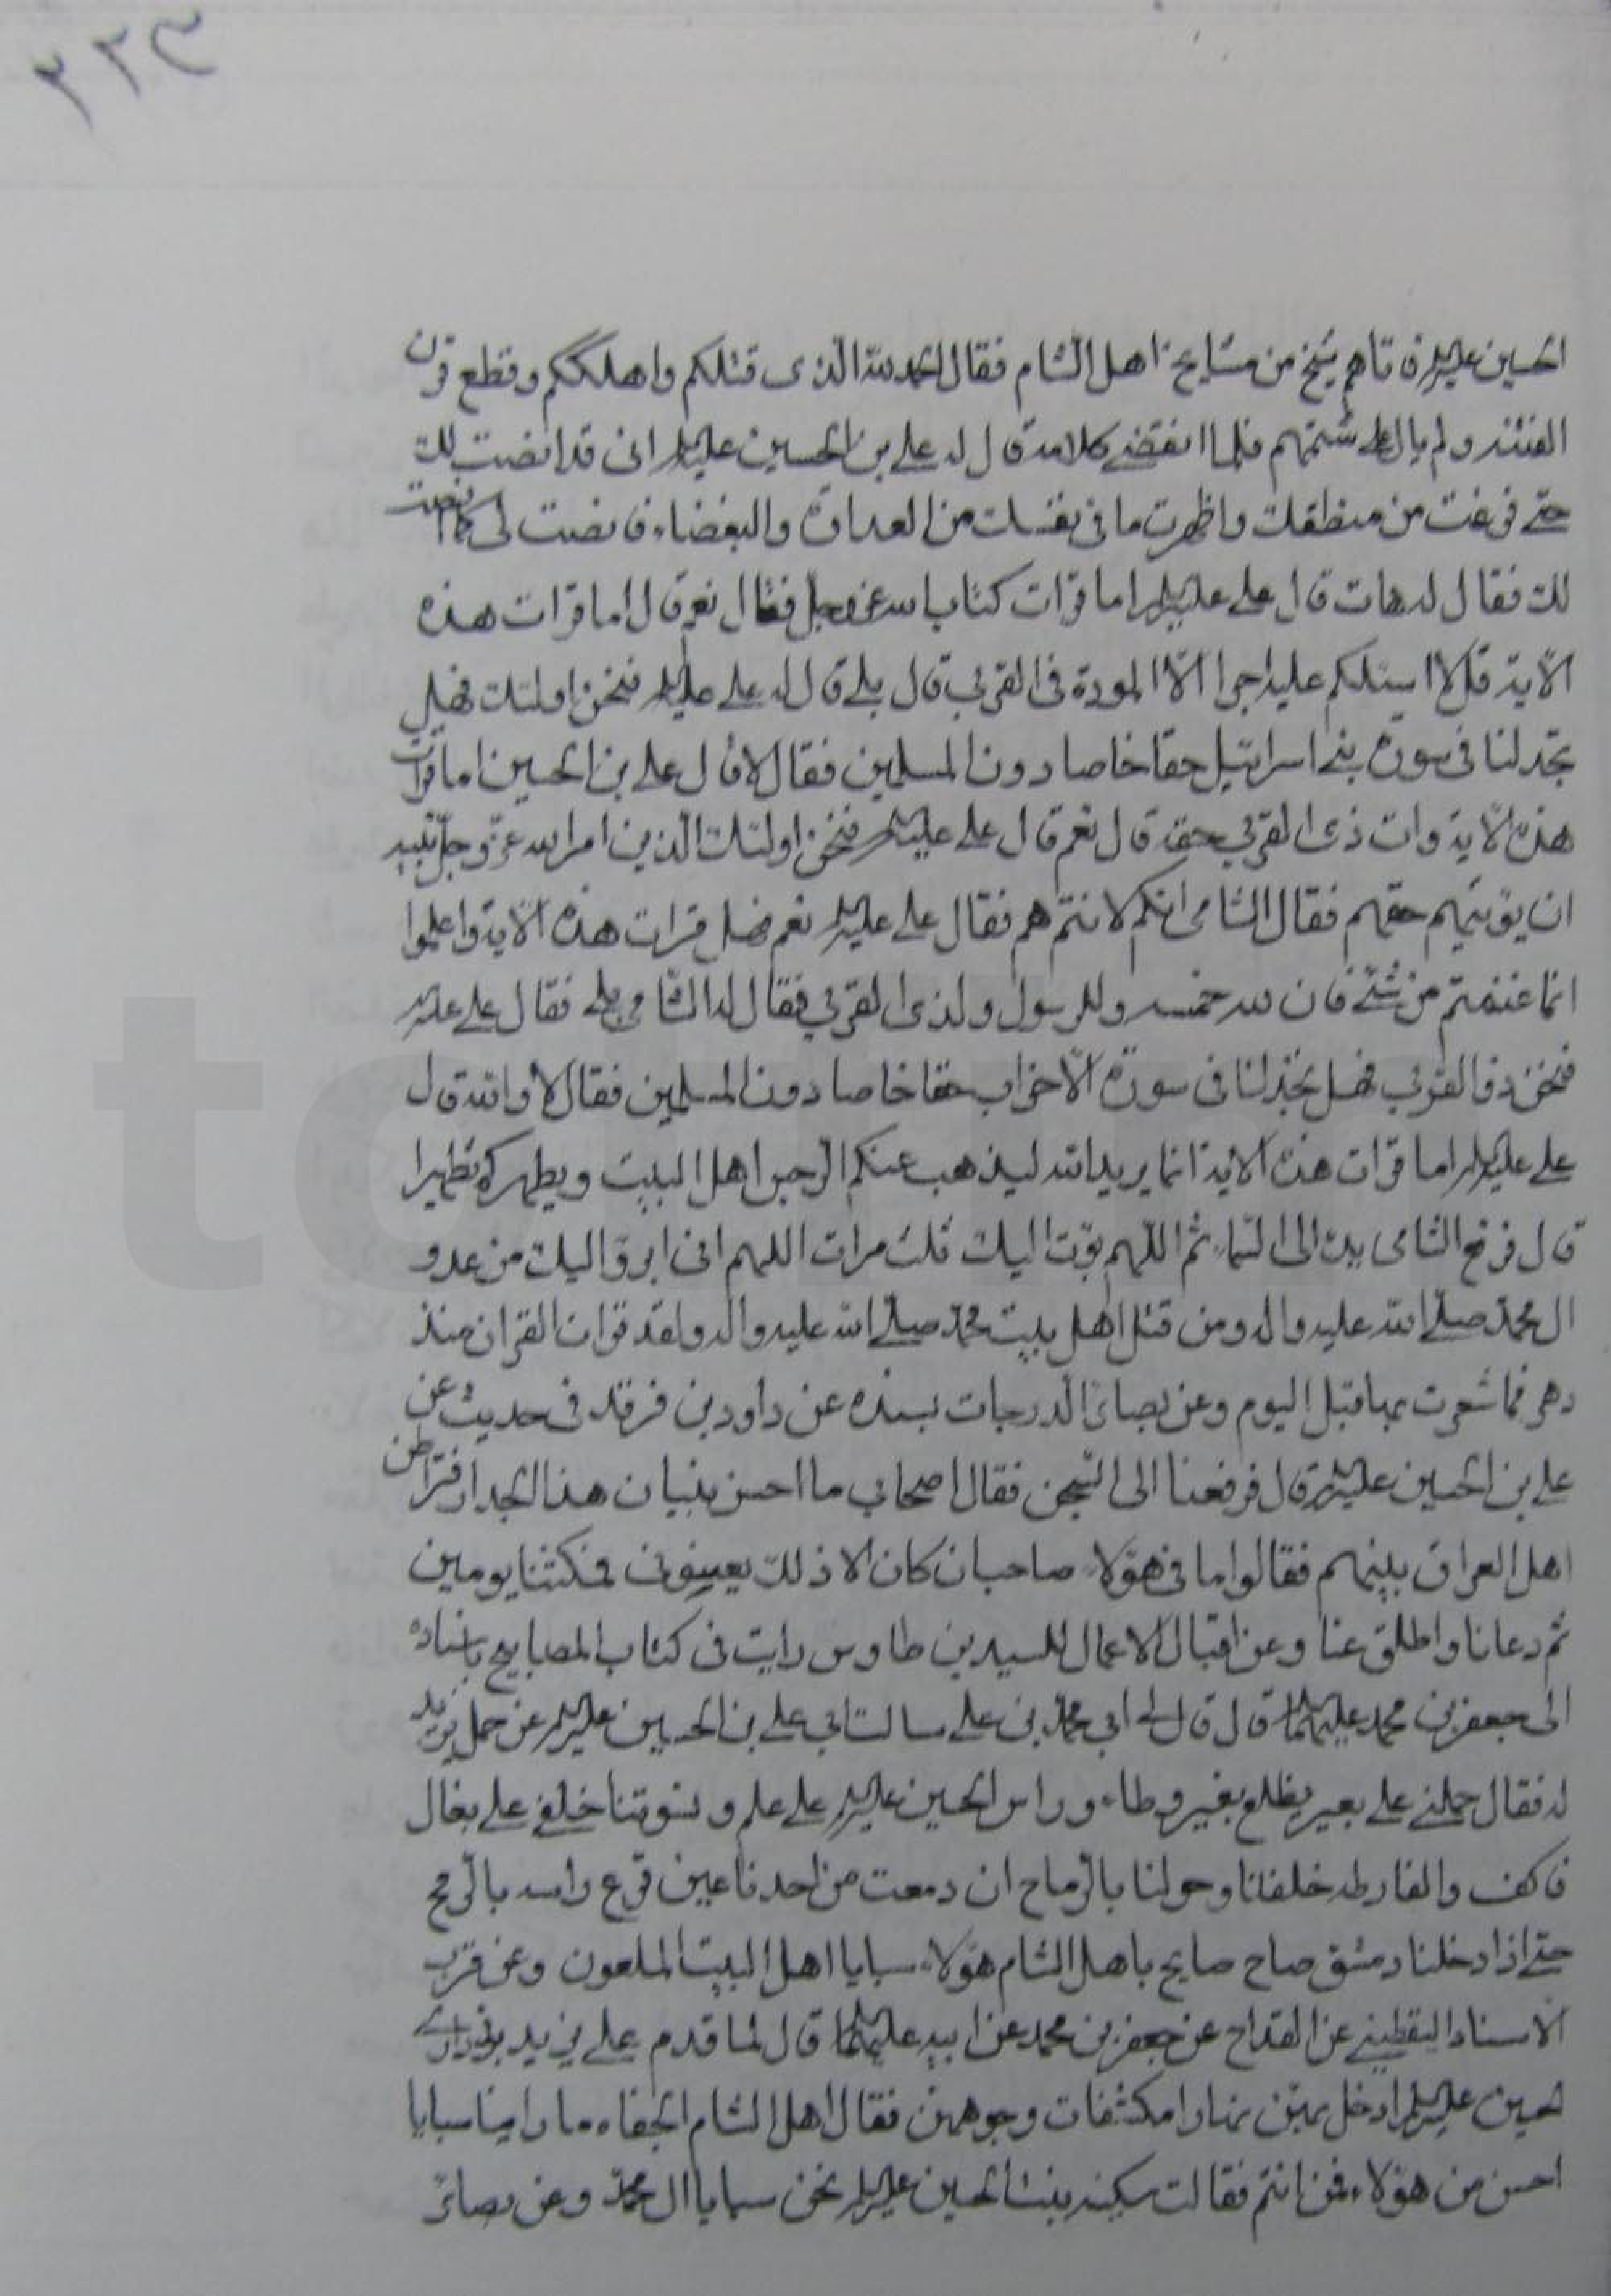 ٢٢٣
الحسين عليه السلم فاتاهم شيخ من مشايخ اهل الشام فقال الحمد لله الذى قتلكم واهلككم وقطع قرن
الفتنه ولم يال على شتمهم فلما انقضى كلامه قال له على بن الحسين عليه السلم انى قد انصت لك
حتى فرغت من منطقك واظهرت ما فى نفسك من العداوة والبغضاء فانصت لى كما انصت
لك فقال له هات قال على عليه السلم اما قرات كتاب الله عز وجل فقال نعم قال اما قرات هذه
الآية قل لا اسئلكم عليه اجرا الّا المودة فى القربى قال بلى قال له على عليه السلم فنحن اولئك فهل
تجد لنا فى سورة بنى اسرائيل حقا خاصا دون المسلمين فقال لا قال على بن الحسين اما قرات
هذه الآية وات ذى القربى حقه قال نعم قال على عليه السلم فنحن اولئك الّذين امر الله عزّ وجلّ نبيه
ان يؤتيهم حقهم فقال الشامى انكم لانتم هم فقال على عليه السلم نعم فهل قرات هذه الآية واعلموا
انّما غنمتم من شئ فان لله خمسه وللرسول ولذى القربى فقال له الشامى بلى فقال على عليه
فنحن ذو القربى فهل تجد لنا فى سورة الّاحزاب حقا خاصا دون المسلمين فقال لا والله قال
على عليه السلم اما قرات هذه الآية انما يريد الله ليذهب عنكم الرّجس اهل البيت ويطهركم تطهيرا
قال فرفع الشامى يده الى السّماء ثم اللّهم توبت اليك ثلث مرات اللهم انى ابرؤ اليك من عدو
ال محمّد صلّى الله عليه واله ومن قتل اهل بيت محمّد صلّى الله عليه واله ولقد قرات القران منذ
دهر فما شعرت بها قبل اليوم وعن بصائر الّدرجات بسنده عن داود بن فرقد فى حديث عن
على بن الحسين عليه السلم قال فرفعنا الى السّجن فقال اصحابى ما احسن بنيان هذا الجدار فتراطن
اهل العراق بينهم فقالوا ما فى هؤلاء صاحبان كان الا ذلك يعنونى فمكثنا يومين
ثم دعانا واطلق عنا وعن اقبال الاعمال للسيد بن طاوس رايت فى كتاب المصابيح باسناده
الى جعفر بن محمد عليهما السلم قال قال لى ابى محمّد بن على سالت ابى على بن الحسين عليه السلم عن حمل يزيد
له فقال حملنى على بعير يظلع بغير وطاء وراس الحسين عليه السلم على علم ونسوتنا خلفى على بغال
فاكف والفارطه خلفنا وحولنا بالرّماح ان دمعت من احدنا عين قرع راسه بالرّمح
حتى اذا دخلنا دمشق صاح صايح باهل الشام هؤلاء سبايا اهل البيت الملعون وعن قرب
الاسناد اليقطينى عن القداح عن جعفر بن محمد عن ابيه عليهما السلم قال لما قدم على يزيد بذرارى
الحسين عليه السلم ادخل بهن نهارا مكشفات وجوههن فقال اهل الشام الجفاء ما راينا سبايا
احسن من هؤلاء فمن انتم فقالت سكينه بنت الحسين عليه السلم نحن سبايا ال محمّد وعن بصائر